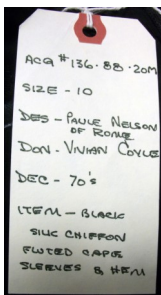 ACQ # 136.88.20M
SIZE - 10
DES - PAULE NELSON
OF ROME
DON - VIVIAN COYLE
DEC - 70's
ITEM - BLACK
SILK CHIFFON
FLUTED CAPE
SLEEVES & HEM